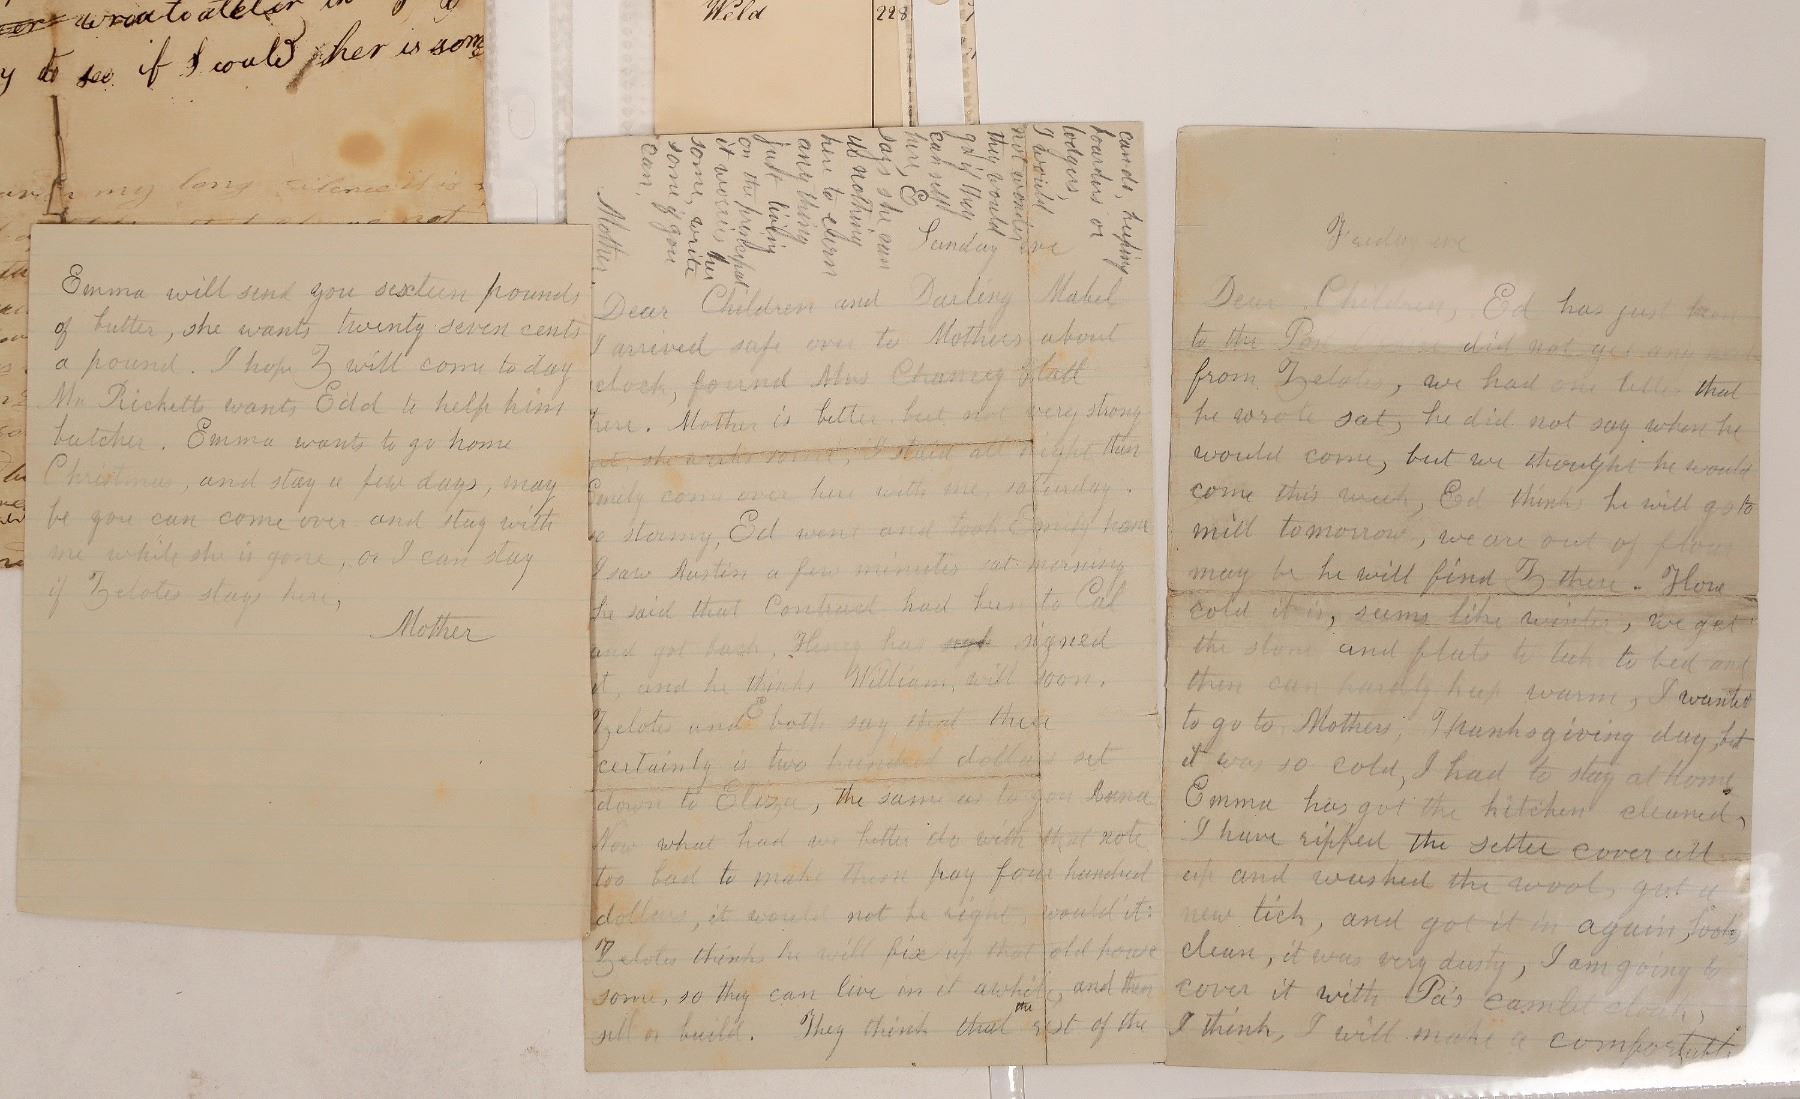 wrote a letter in
to see if I could her is some
Weld 228
my long silence it is
not
Emma will send you sixteen pounds
of butter, she wants twenty seven cents
a pound. I hope Z will come to day
Mr Ricketts wants Edd to help him
butcher. Emma wants to go home
Christmas, and stay a few days, may
be you can come over and stay with
me while she is gone, or I can stay
if Zelotes stays here,
Mother
cands, keeping
boarders or
lodgers,
I would
not wonder
they would
go if they
can sell
here, E
says she can
us nothing
here to earn
any thing
just living
on the principal
it wories her
some, write
some if you
can.
Mother
Sunday eve
Dear Children and Darling Mabel
I arrived safe over to Mothers about
clock, found Mrs Chancey Statt
here. Mother is better but not very strong
yet, she works some, I staid all night then
Emily come over here with me, saturday.
so stormy, Ed went and took Emily home
I saw Austin a few minutes sat morning
he said that Contract had been to Cal
and got back, Henry has signed
it, and he thinks William, will soon.
Zelotes and E both say that there
certainly is two hundred dollars set
down to Eliza, the same as to you
Now what had we better do with that note
too bad to make them pay four hundred
dollars, it would not be right, would it:
Zelotes thinks he will fix up that old house
some, so they can live in it awhile, and then
sell or build. They think that the rest of the
Friday eve
Dear Children, Ed has just been
to the did not get any
from Zelotes, we had one letter that
he wrote sat, he did not say when he
would come, but we thought he would
come this week, Ed thinks he will go to
mill tomorrow, we are out of flour
may be he will find Z there. How
cold it is, seems like winter, we get
the stone and flats to take to bed and
then can hardly keep warm, I wanted
to go to Mothers, Thanksgiving day, but
it was so cold, I had to stay at home,
Emma has got the kitchen cleaned,
I have ripped the settee cover all
up and washed the wool, got a
new tick, and got it in again, looks
clean, it was very dusty, I am going to
cover it with Pa's camlet cloak,
I think, I will make a comfortable